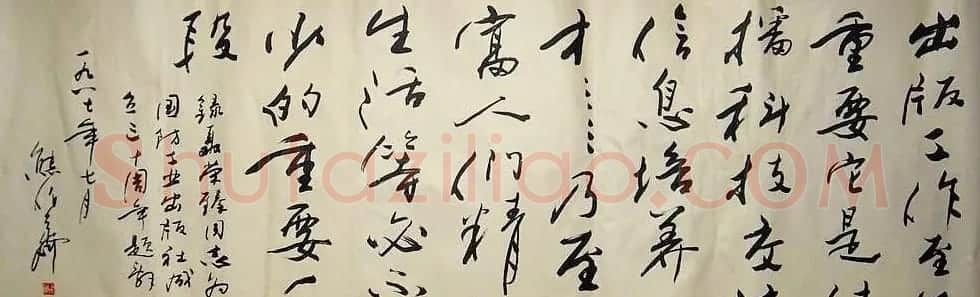 出版工作至
重要它是
播科技交
信息培养
才……乃至
富人们精
生活等必不
少的重要
段
录聂荣臻同志为
国防工业出版社成
立三十周年题辞
一九八七年七月
熊
Shufaziliao.COM